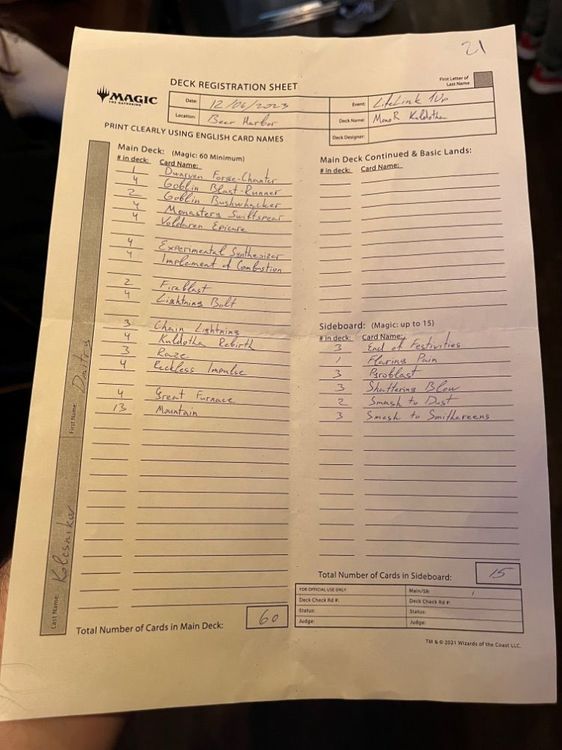 21
MAGIC
THE GATHERING
DECK REGISTRATION SHEET
First Letter of
Last Name
Date: 12/06/2023
Event: LifeLink 1Up
Location: Beer Harbor
Deck Name: MonoR Kuldotha
Deck Designer:
PRINT CLEARLY USING ENGLISH CARD NAMES
Main Deck: (Magic: 60 Minimum)
# in deck: Card Name:
1 Dwarven Forge-Chanter
4 Goblin Blast-Runner
2 Goblin Bushwhacker
4 Monastery Swiftspear
4 Voldaren Epicure
4 Experimental Synthesizer
4 Implement of Combustion
2 Fireblast
4 Lightning Bolt
3 Chain Lightning
4 Kuldotha Rebirth
3 Raze
4 Reckless Impulse
4 Great Furnace
13 Mountain
Total Number of Cards in Main Deck: 60
Main Deck Continued & Basic Lands:
# in deck: Card Name:
Sideboard: (Magic: up to 15)
# in deck: Card Name:
3 End of Festivities
1 Flaring Pain
3 Pyroblast
3 Shattering Blow
2 Smash to Dust
3 Smash to Smithereens
Total Number of Cards in Sideboard: 15
FOR OFFICIAL USE ONLY
Main/SB: /
Deck Check Rd #:
Deck Check Rd #:
Status:
Status:
Judge:
Judge:
TM & © 2021 Wizards of the Coast LLC.
First Name: Dmitry
Last Name: Kolesnikov